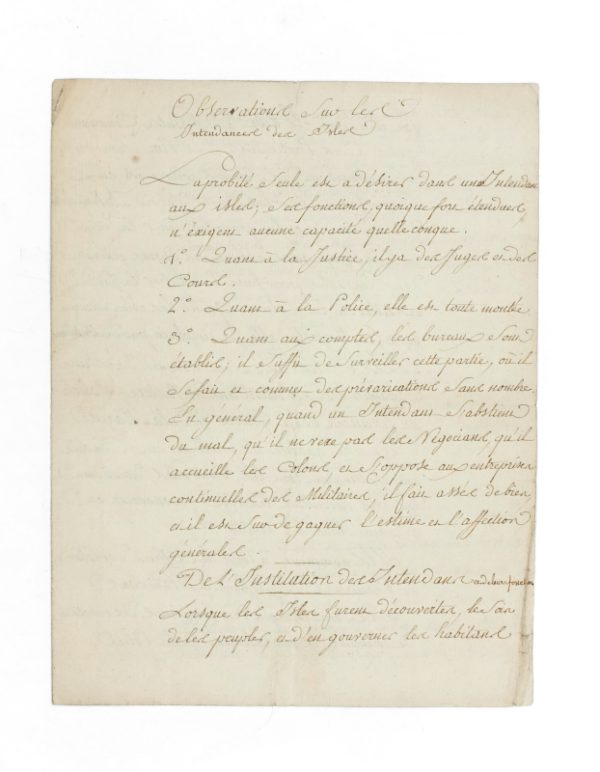 Observations sur les
Intendances des Isles
La probité seule est a désirer dans un Intendant
aux isles; ses fonctions, quoique fort étendues,
n'éxigent aucune capacité quelle conque.
1°. Quant à la Justice, il ya des Juges et des
Cours.
2°. Quant à la Police, elle est toute montée
3°. Quant aux comptes, les bureaux sont
établis; il suffit de surveiller cette partie, où il
se fait et commet des prévarications sans nombre.
En général, quand un Intendant s'abstient
du mal, qu'il ne vexe pas les Négocians, qu'il
accueille les Colons, et s'oppose aux entreprises
continuelles des Militaires, il fait assés de bien,
et il est sur de gagner l'estime et l'affection
générales.
De l'Institution des Intendans et de leurs fonctions
Lorsque les Isles furent découvertes, le soin
de les peupler, et d'en gouverner les habitans